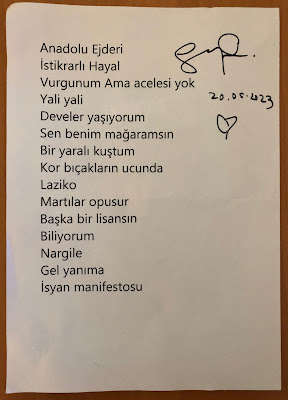 Anadolu Ejderi
İstikrarlı Hayal
Vurgunum Ama acelesi yok
Yali yali
Develer yaşıyorum
Sen benim mağaramsın
Bir yaralı kuştum
Kor bıçakların ucunda
Laziko
Martılar opusur
Başka bir lisansın
Biliyorum
Nargile
Gel yanıma
İsyan manifestosu
20.05.2023